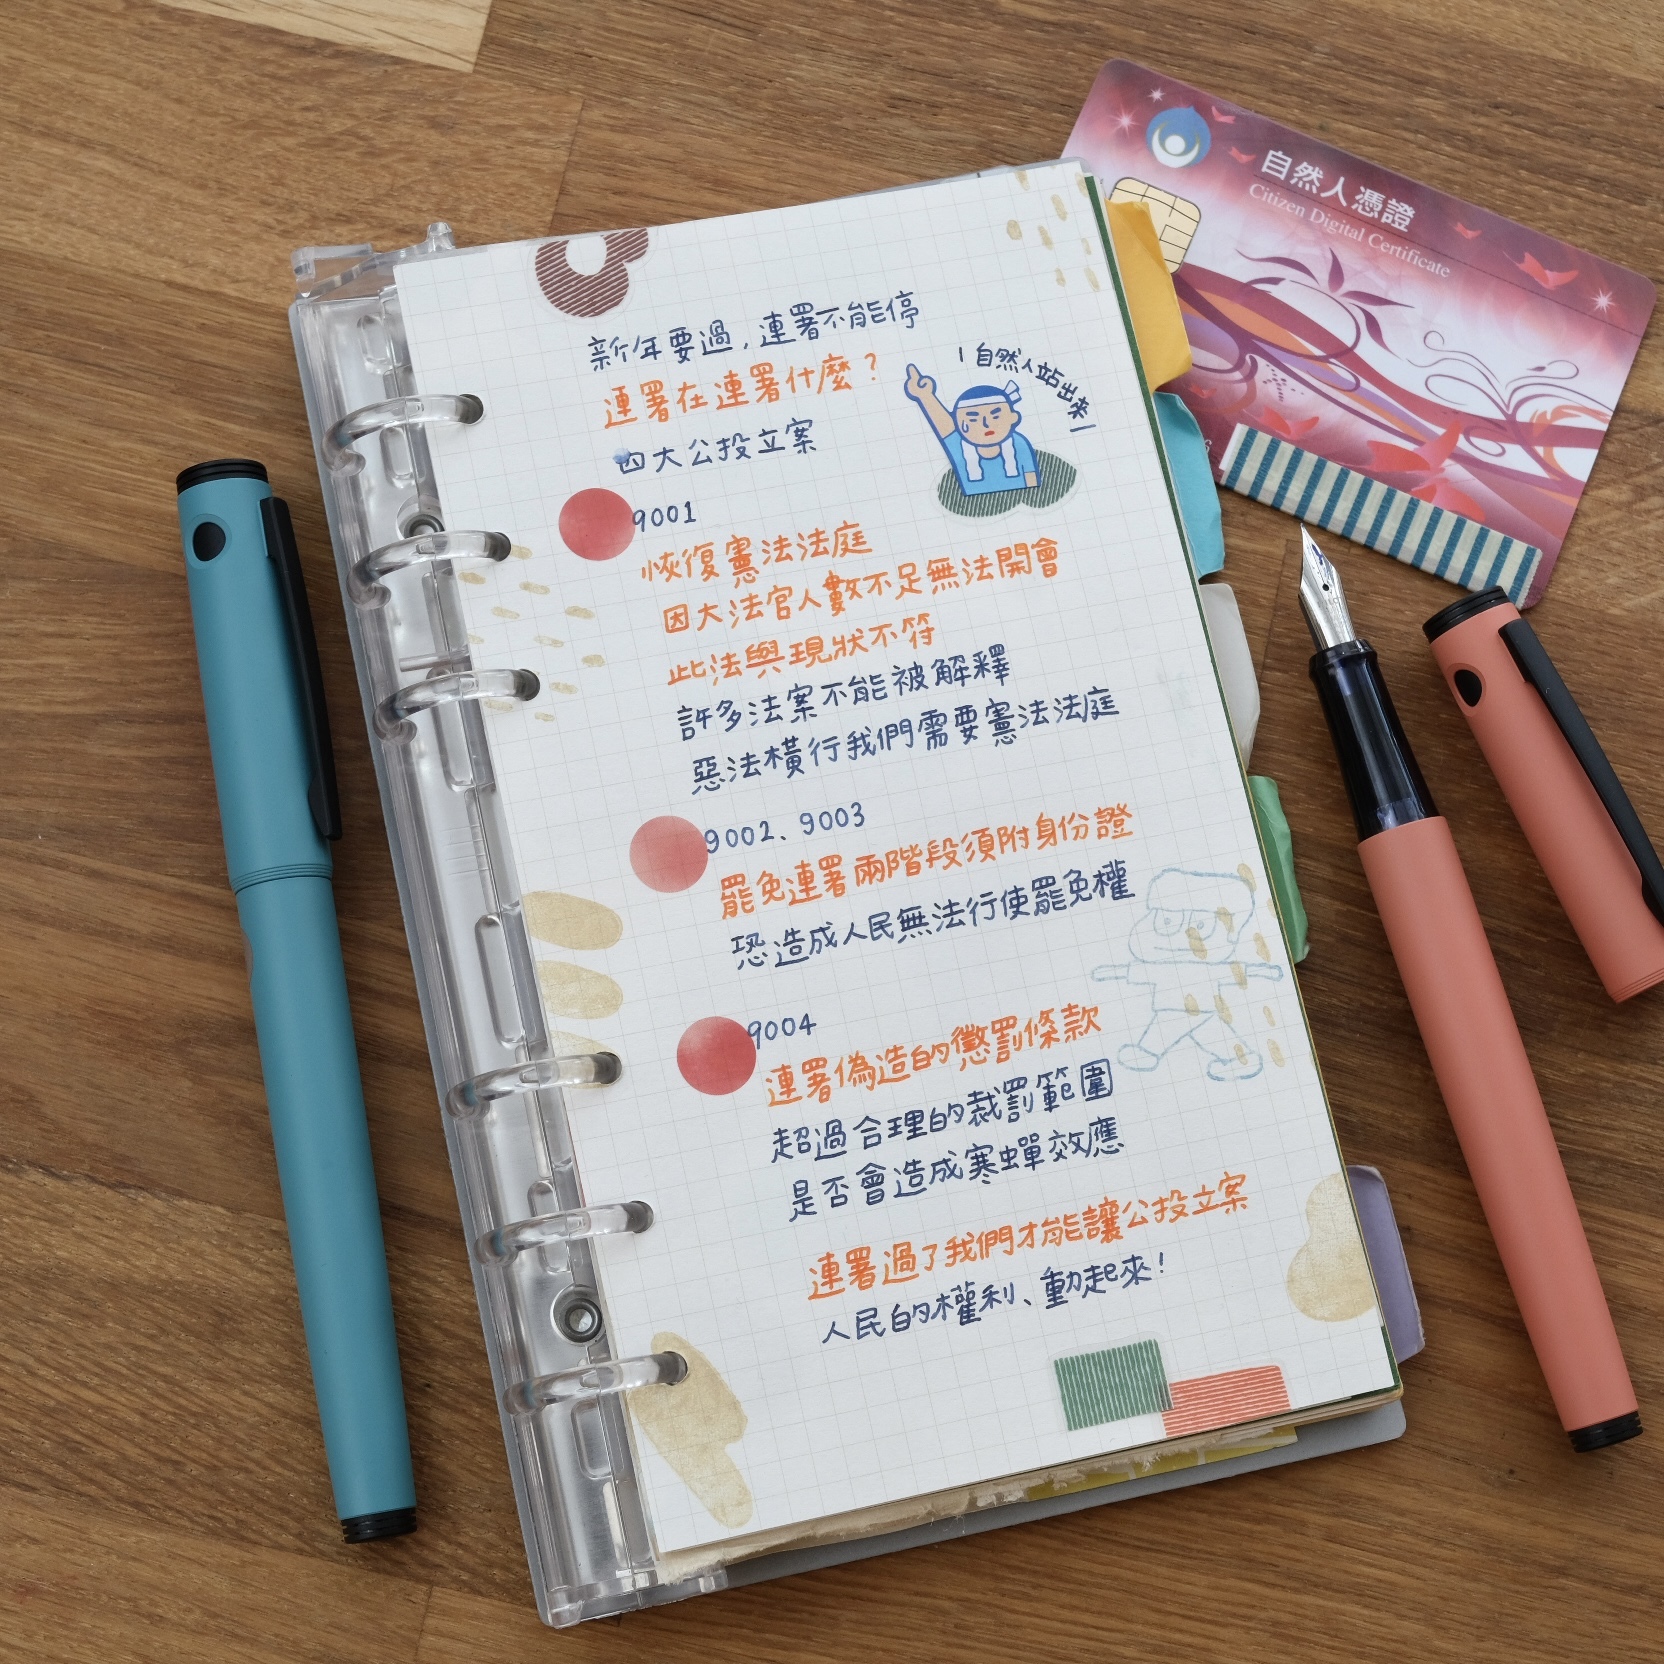 自然人憑證
Citizen Digital Certificate
新年要過，連署不能停
連署在連署什麼？
四大公投立案
自然人站出來
9001
恢復憲法法庭
因大法官人數不足無法開會
此法與現狀不符
許多法案不能被解釋
惡法橫行我們需要憲法法庭
9002、9003
罷免連署兩階段須附身份證
恐造成人民無法行使罷免權
9004
連署偽造的懲罰條款
超過合理的裁罰範圍
是否會造成寒蟬效應
連署過了我們才能讓公投立案
人民的權利、動起來！